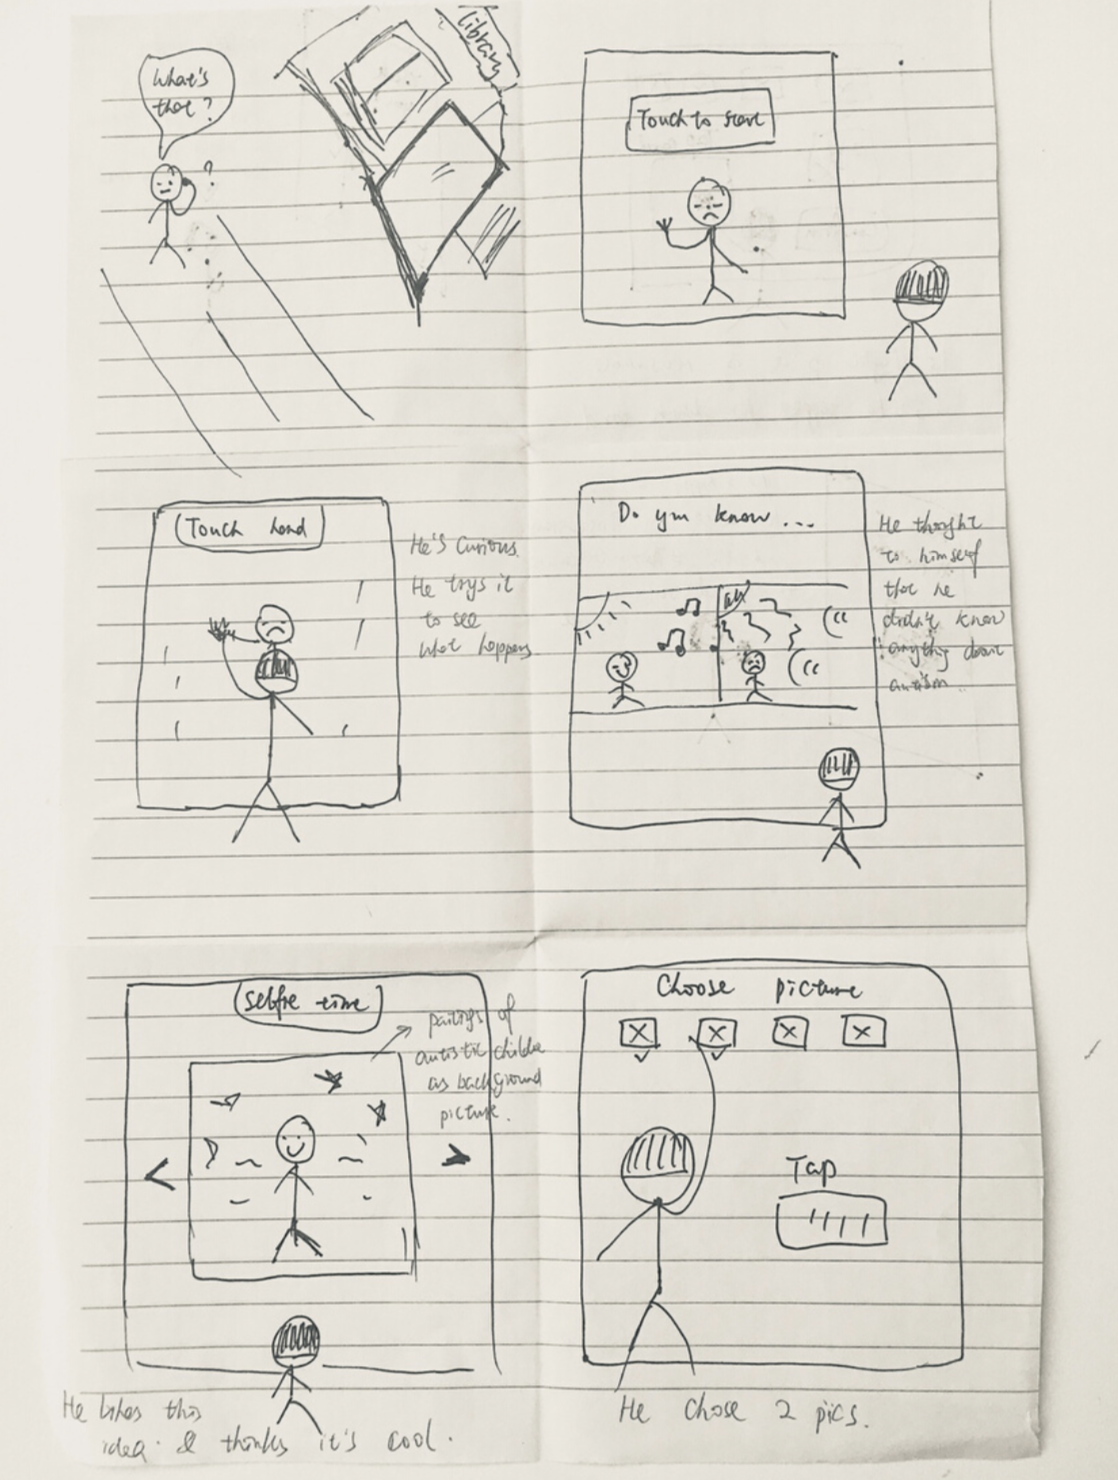 What's
that?
library
Touch to start
Touch hand
He's curious.
He trys it
to see
what happens
Do you know...
He thought
to himself
that he
didn't know
anything about
autism.
Selfie time
paitings of
autistic childre
as background
picture.
He likes this
idea. & thinks it's cool.
Choose picture
Tap
He chose 2 pics.